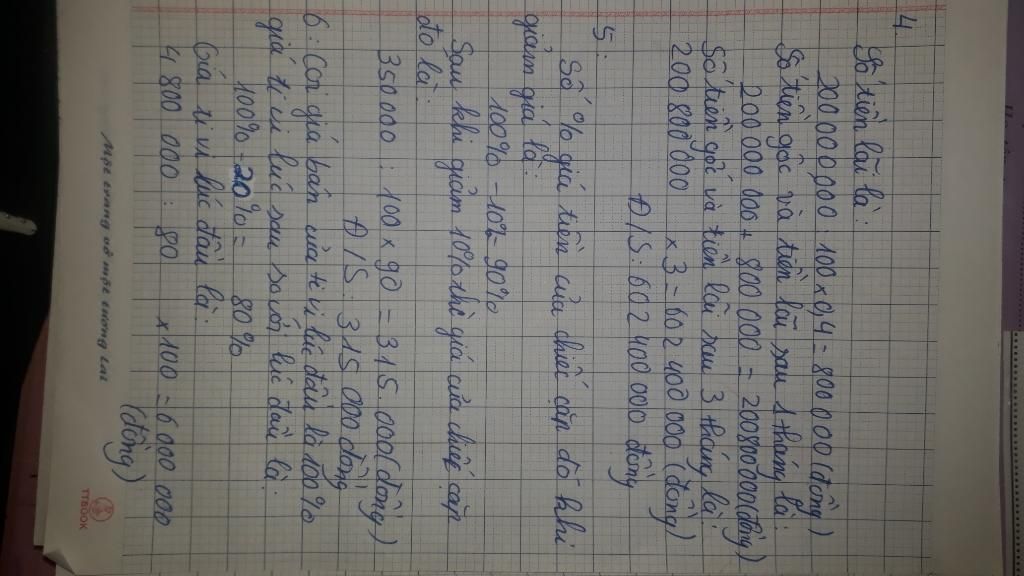 4.
Số tiền lãi là:
200 000 000 : 100 x 0,4 = 800 000 (đồng)
Số tiền gốc và tiền lãi sau 1 tháng là:
200 000 000 + 800 000 = 200800000 (đồng)
Số tiền gốc và tiền lãi sau 3 tháng là:
200 800 000 x 3 = 602 400 000 (đồng)
Đ/S: 602 400 000 đồng
5:
Số % giá tiền của chiếc cặp đó khi
giảm giá là:
100% - 10% = 90%
Sau khi giảm 10% thì giá của chiếc cặp
đó là:
350000 : 100 x 90 = 315.000 (đồng)
Đ/S: 315 000 đồng
6: Coi giá bán của ti vi lúc đầu là 100%
giá ti vi lúc sau so với lúc đầu là:
100% - 20% = 80%
Giá ti vi lúc đầu là:
4 800 000 : 80 x 100 = 6 000 000
(đồng)
TTBOOK